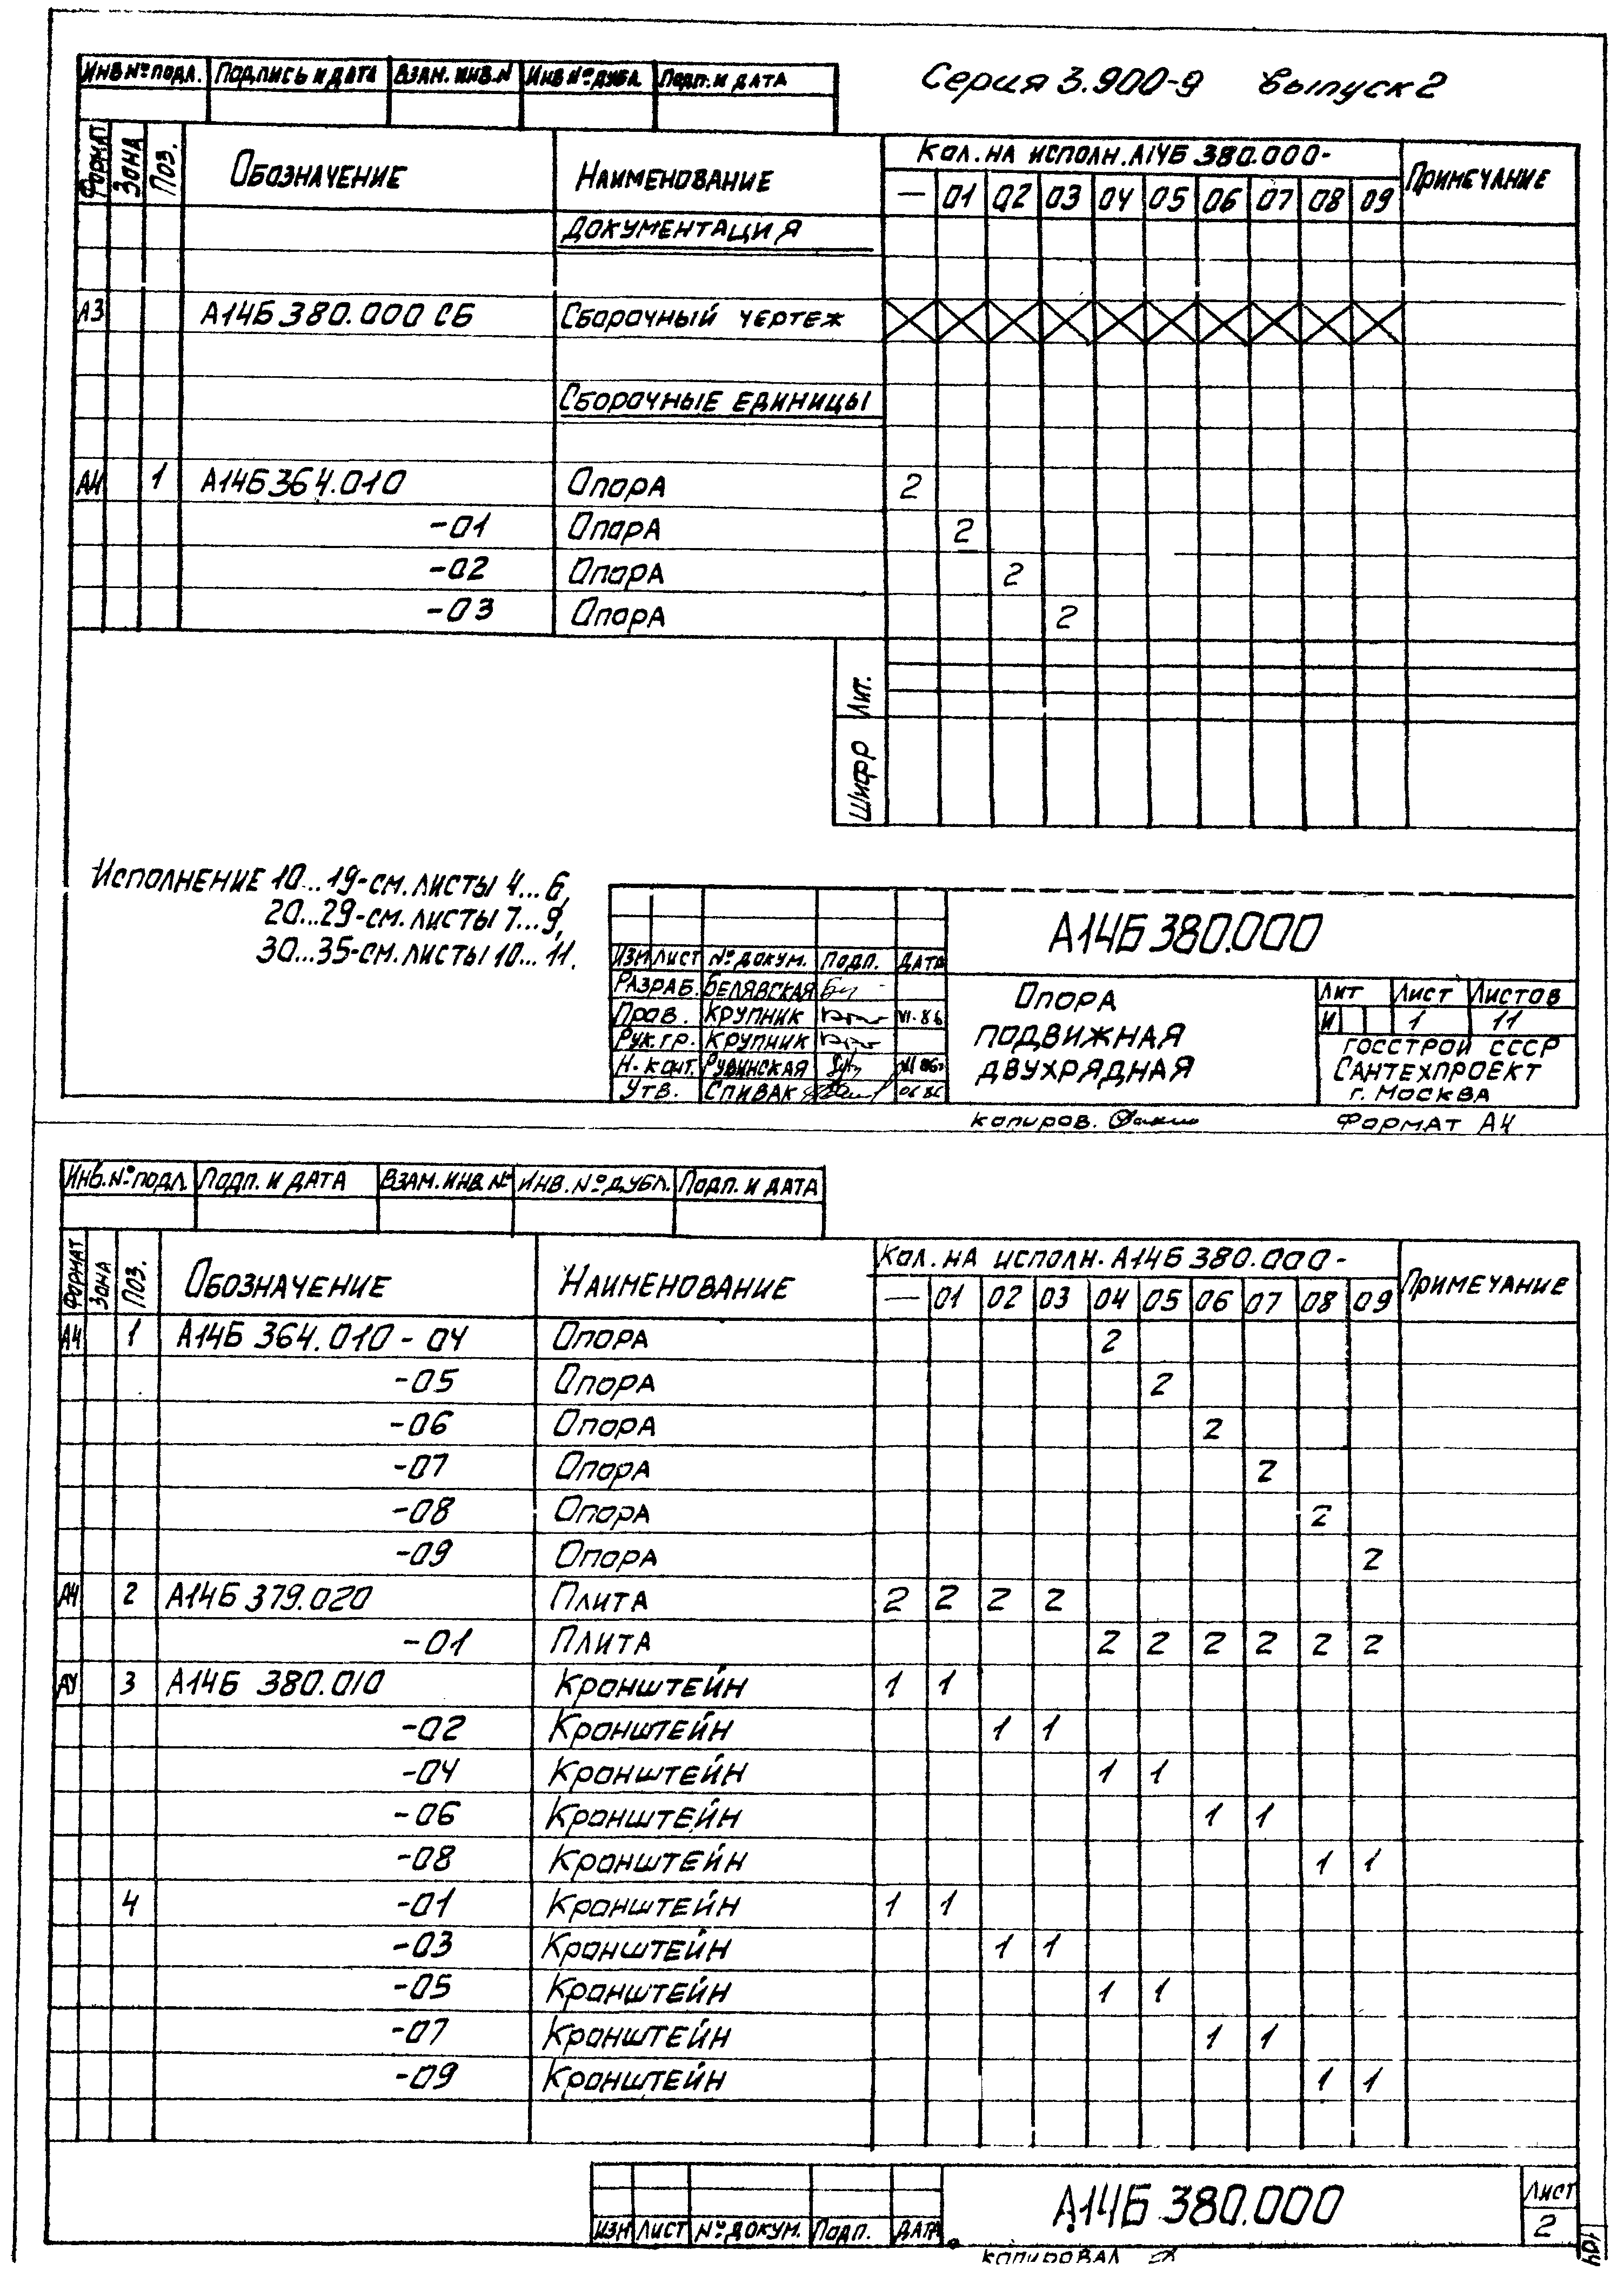 Серия 3.900-9 Выпуск 2
Инв № подл. Подпись и дата Взам. инв. N Инв № дубл. Подп. и дата
Формат Зона Поз. Обозначение Наименование Кол. на исполн. А14Б 380.000- Примечание
— 01 02 03 04 05 06 07 08 09
Документация
А3 А14Б 380.000 СБ Сборочный чертеж
Сборочные единицы
А4 1 А14Б 364.010 Опора 2
-01 Опора 2
-02 Опора 2
-03 Опора 2
Лит.
Шифр
Исполнение 10...19-см. листы 4...6,
20...29-см. листы 7...9,
30...35-см. листы 10...11.
А14Б 380.000
Изм Лист № докум. Подп. Дата
Разраб. Белявская
Пров. Крупник VI.86
Рук. гр. Крупник
Н. конт. Рувинская
Утв. Спивак
Опора
подвижная
двухрядная
Лит Лист Листов
И 1 11
Госстрой СССР
Сантехпроект
г. Москва
копиров. Формат А4
Инв. № подл. Подп. и дата Взам. инв. № Инв. № дубл. Подп. и дата
Формат Зона Поз. Обозначение Наименование Кол. на исполн. А14Б 380.000- Примечание
— 01 02 03 04 05 06 07 08 09
А4 1 А14Б 364.010-04 Опора 2
-05 Опора 2
-06 Опора 2
-07 Опора 2
-08 Опора 2
-09 Опора 2
А4 2 А14Б 379.020 Плита 2 2 2 2
-01 Плита 2 2 2 2 2 2
А4 3 А14Б 380.010 Кронштейн 1 1
-02 Кронштейн 1 1
-04 Кронштейн 1 1
-06 Кронштейн 1 1
-08 Кронштейн 1 1
4 -01 Кронштейн 1 1
-03 Кронштейн 1 1
-05 Кронштейн 1 1
-07 Кронштейн 1 1
-09 Кронштейн 1 1
Изм Лист № докум. Подп. Дата
А14Б 380.000
Лист
2
копировал